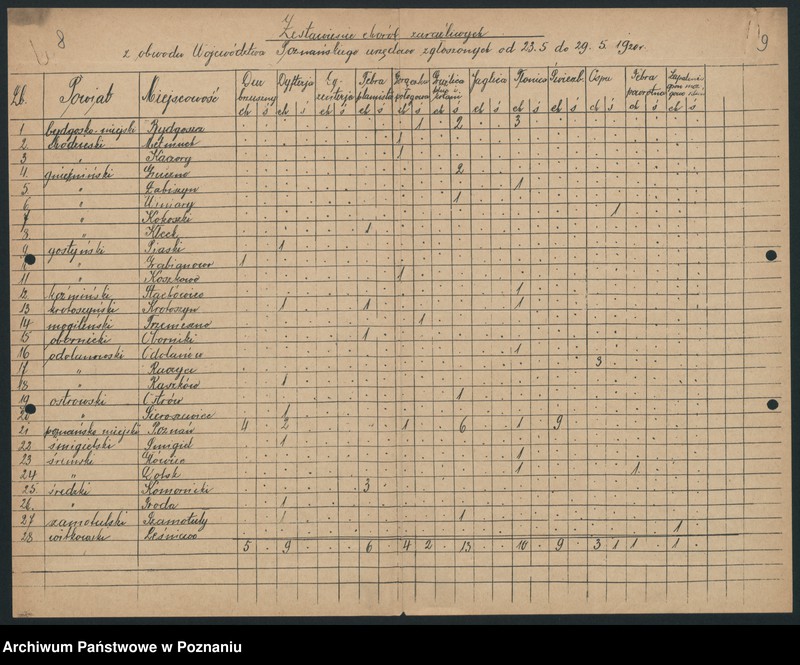 8
9
Zestawienie chorób zaraźliwych
z obwodu Województwa Poznańskiego urzędowo zgłoszonych od 23.5 do 29. 5. 1920r.
Lb. Powjat Miejscowość Dur brzuszny Dyfterja Febra plamista Gruźlica Jaglica Ospa Febra powrotna
ch ś ch ś ch ś ch ś ch ś ch ś ch ś ch ś ch ś ch ś ch ś
1 bydgosko-miejski Bydgoszcz 1 2 3
2 1
3 " Kaczory 1
4 gnieźnieński 2
5 " Łabiszyn 1
6 " 1
7 " Kokoszki 1
8 " Kłeck 1
9 gostyński Piaski 1
" 1
11 " 1
12 koźmiński 1
13 krotoszyński Krotoszyn 1 1 1
14 mogileński 1
15 obornicki Oborniki 1
16 odolanowski Odolanów 1
17 " 3
18 " Raszków 1
19 ostrowski Ostrów 1
20 " Sieroszewice 1
21. poznańsko miejski Poznań 4 2 1 6 1 9
22 śmigielski Śmigiel 1
23 śremski 1
24 " 1 1
25 średzki Komorniki 3
26. " Środa 1
27 szamotulski Szamotuły 1 1
28 witkowski 1
5 9 6 4 2 13 10 9 3 1 1 1
Archiwum Państwowe w Poznaniu